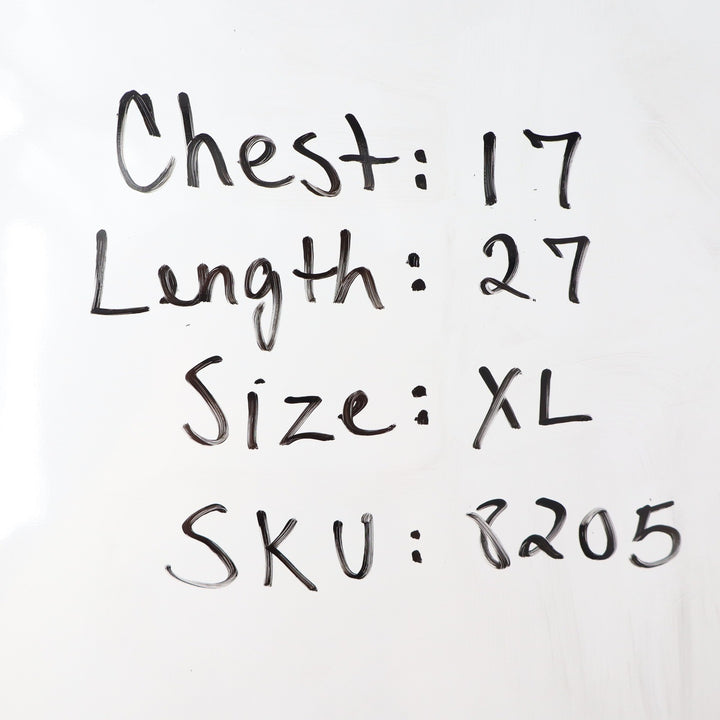 Chest: 17
Length: 27
Size: XL
SKU: 8205